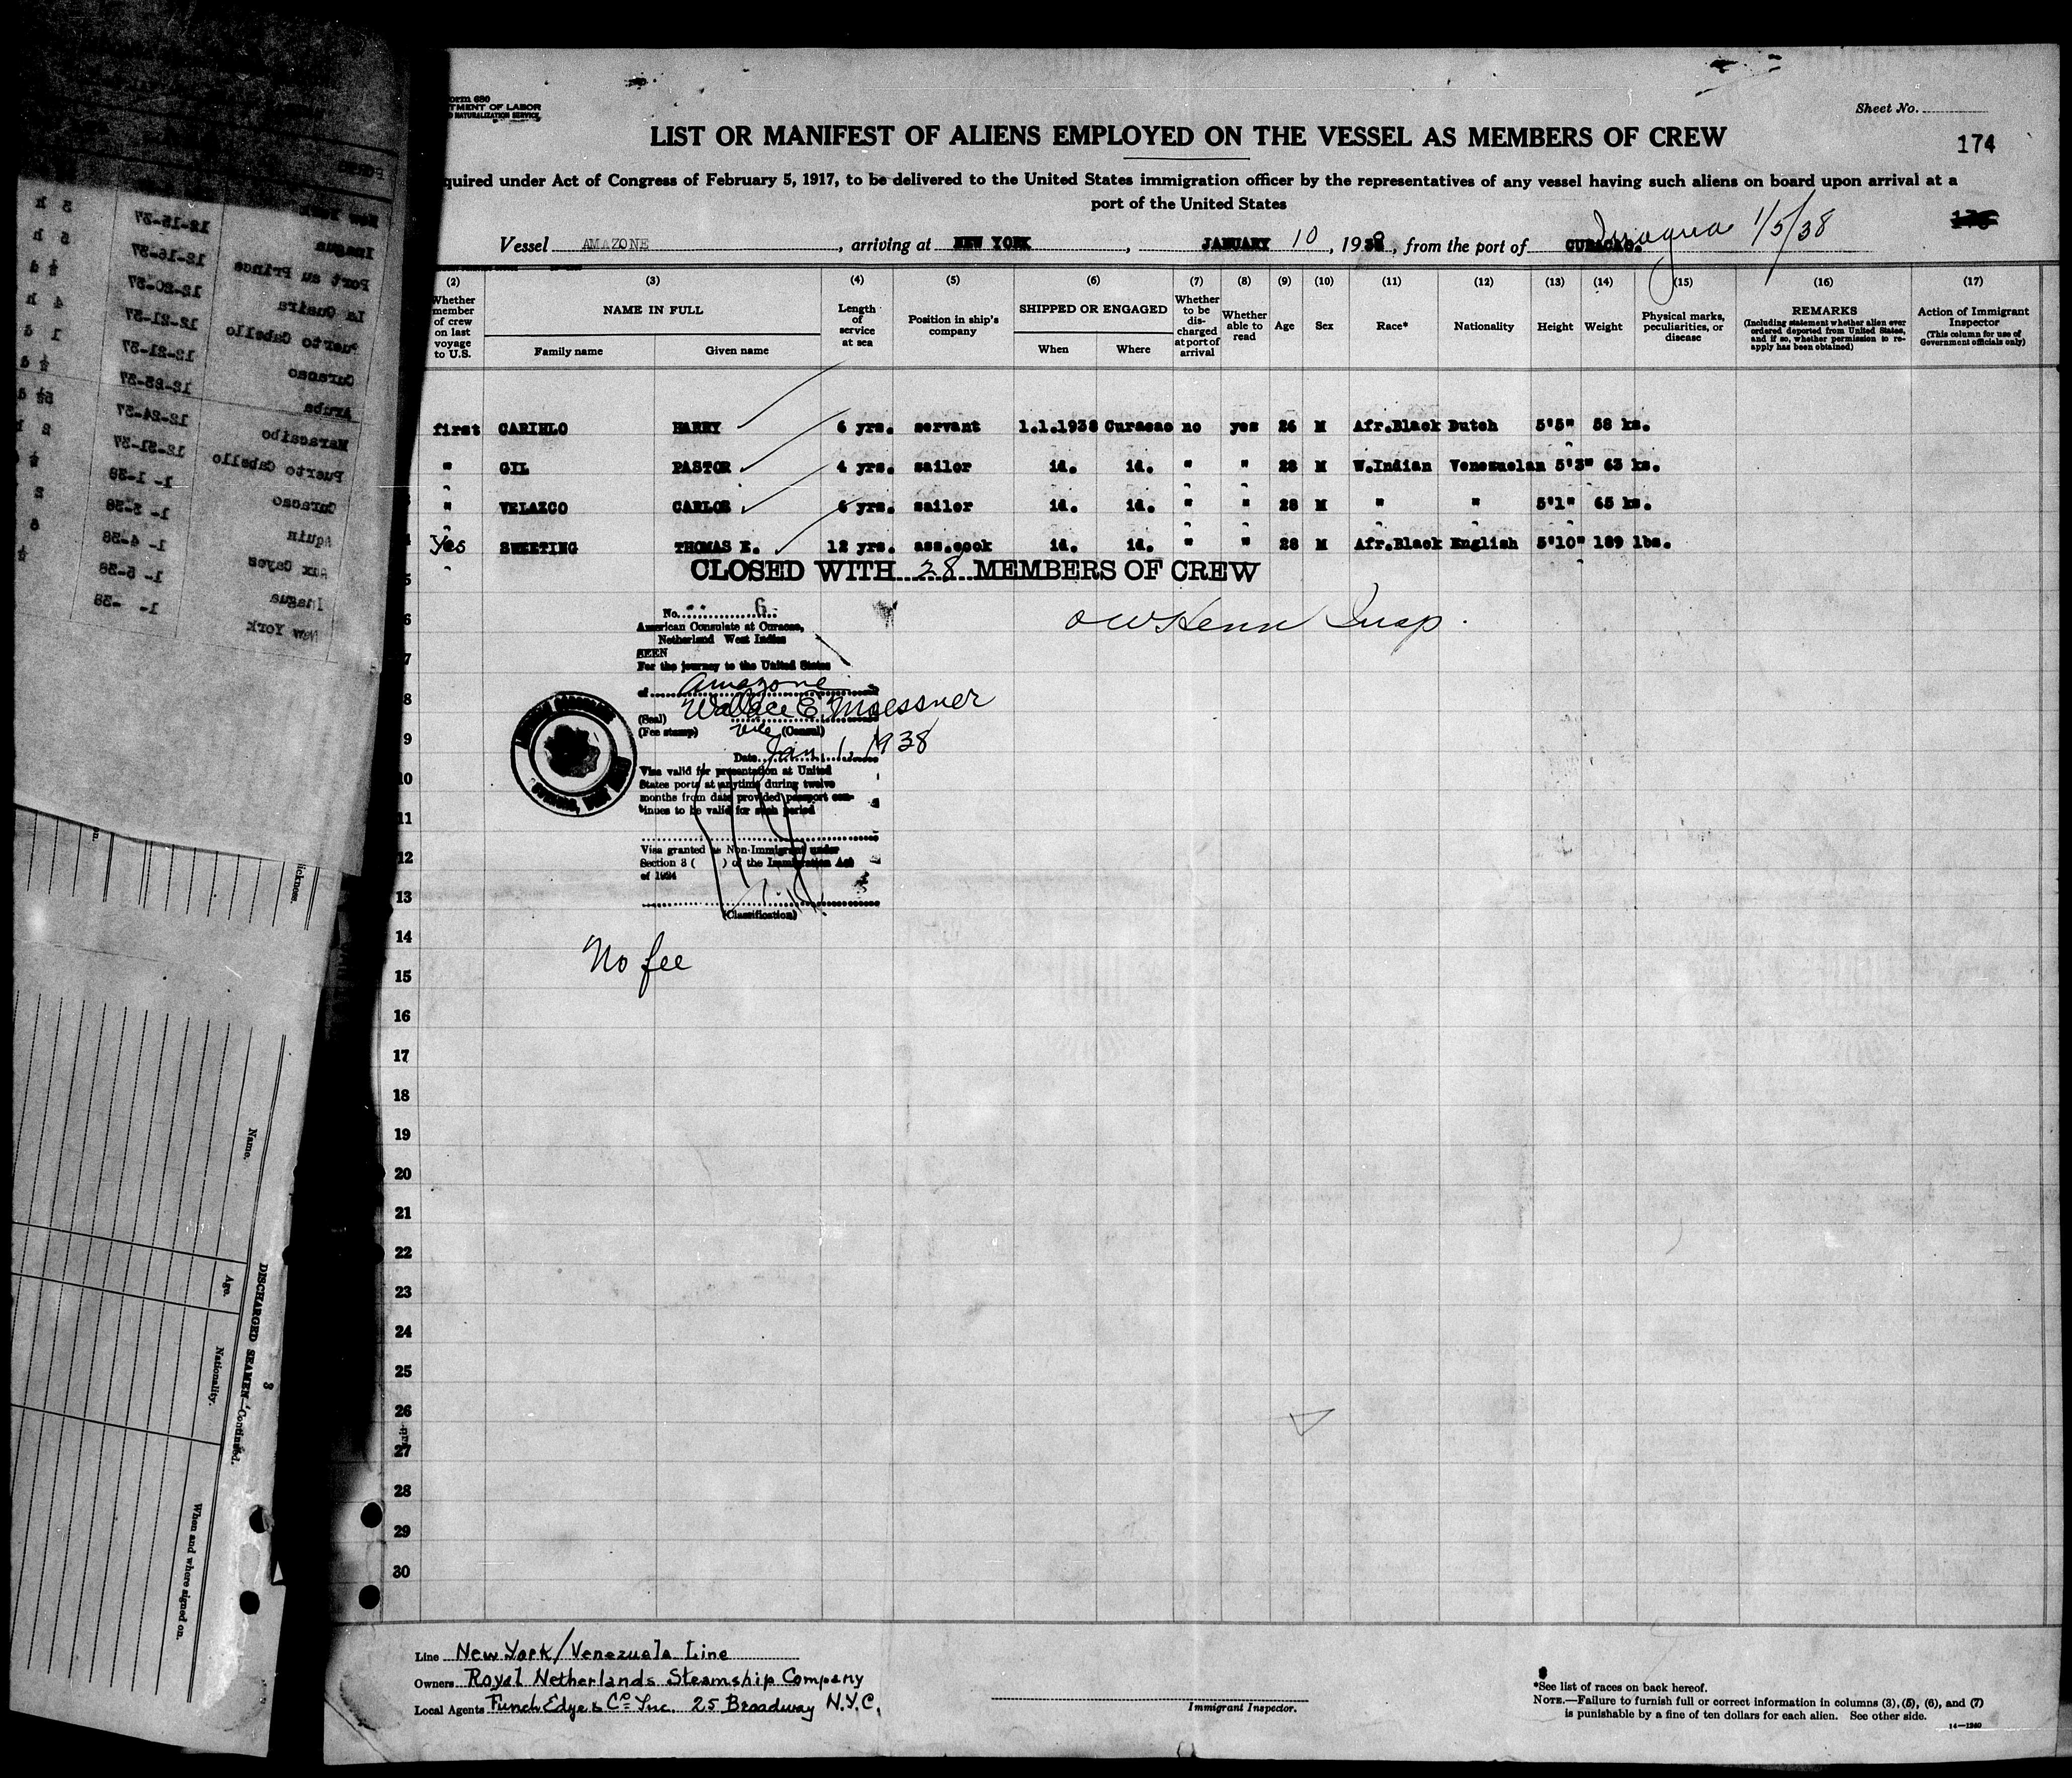 Form 680
TMENT OF LABOR
NATURALIZATION SERVICE
Sheet No.
LIST OR MANIFEST OF ALIENS EMPLOYED ON THE VESSEL AS MEMBERS OF CREW
174
quired under Act of Congress of February 5, 1917, to be delivered to the United States immigration officer by the representatives of any vessel having such aliens on board upon arrival at a
port of the United States
Vessel AMAZONE, arriving at NEW YORK, JANUARY 10, 1938, from the port of CURACAO. Inagua 1/5/38
(2) (3) (4) (5) (6) (7) (8) (9) (10) (11) (12) (13) (14) (15) (16) (17)
Whether member of crew on last voyage to U.S.
NAME IN FULL
Family name
Given name
Length of service at sea
Position in ship's company
SHIPPED OR ENGAGED
When
Where
Whether to be discharged at port of arrival
Whether able to read
Age
Sex
Race*
Nationality
Height
Weight
Physical marks, peculiarities, or disease
REMARKS
(Including statement whether alien ever ordered deported from United States, and if so, whether permission to reapply has been obtained)
Action of Immigrant Inspector
(This column for use of Government officials only)
first CARIHLO HARRY 6 yrs. servant 1.1.1938 Curacao no yes 26 M Afr.Black Dutch 5'5" 58 ks.
" GIL PASTOR 4 yrs. sailor id. id. " " 28 M W.Indian Venezuelan 5'3" 63 ks.
" VELAZCO CARLOS 6 yrs. sailor id. id. " " 28 M " " 5'1" 65 ks.
Yes SWEETING THOMAS E. 12 yrs. ass.cook id. id. " " 28 M Afr.Black English 5'10" 189 lbs.
CLOSED WITH 28 MEMBERS OF CREW
No. 6
American Consulate at Curacao,
Netherland West Indies
SEEN
For the journey to the United States
of Amazone
Wallace E. Moessner
(Seal)
(Fee stamp) Vice (Consul)
Date Jan. 1, 1938
Visa valid for presentation at United
States ports at anytime during twelve
months from date provided passport con-
tinues to be valid for such period
Visa granted as Non-Immigrant under
Section 3 ( ) of the Immigration Act
of 1924
(Classification)
Insp.
No fee
5
6
7
8
9
10
11
12
13
14
15
16
17
18
19
20
21
22
23
24
25
26
27
28
29
30
Line New York/Venezuela Line
Owners Royal Netherlands Steamship Company
Local Agents Funch Edye & Co Inc. 25 Broadway N.Y.C.
Immigrant Inspector.
*See list of races on back hereof.
NOTE.—Failure to furnish full or correct information in columns (3), (5), (6), and (7)
is punishable by a fine of ten dollars for each alien. See other side.
14—1240
New York
Inagua 12-15-37 3 h
Port au Prince 12-16-37 5 h
La Guaira 12-20-37 ½ d
Puerto Cabello 12-21-37 4 h
Curacao 12-21-37 1 d
Aruba 12-23-37 ½ d
Maracaibo 12-24-37 5½ d
Puerto Cabello 12-31-37 2 h
Curacao 1- 1-38
Aquin 1- 3-38
Aux Cayes 1- 4-38
Inagua 1- 5-38
New York 1- -38
DISCHARGED SEAMEN—Continued.
3
Name.
Age.
Nationality.
When and where signed on.